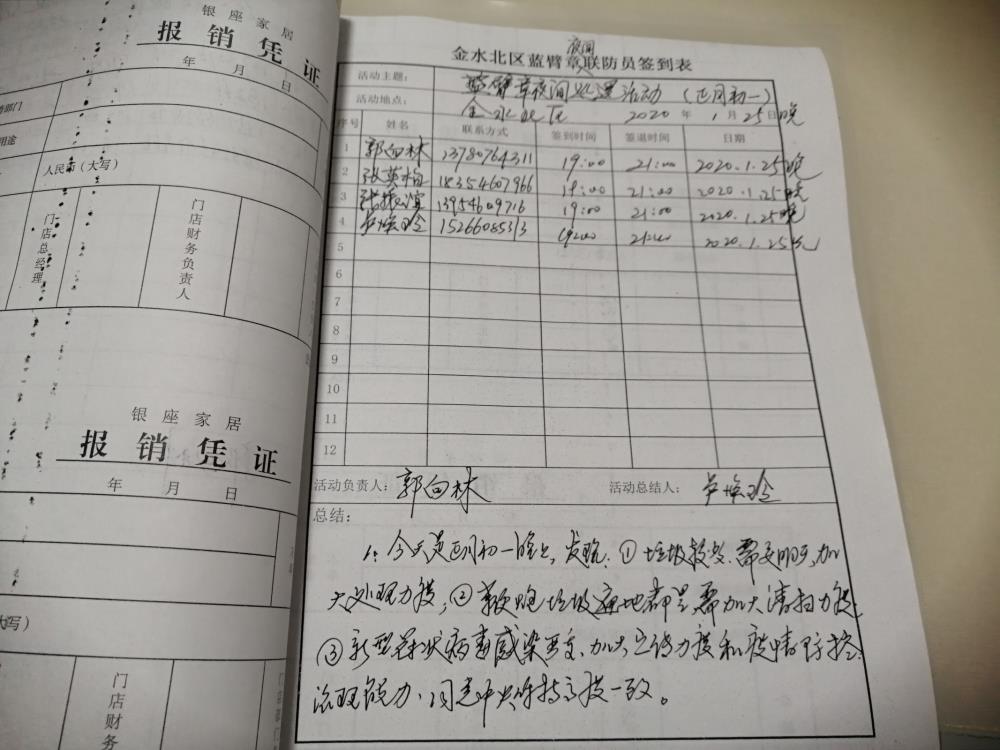 银座家居
报销凭证
年 月 日
用途
人民币（大写）
门店总经理
门店财务负责人
银座家居
报销凭证
年 月 日
大写）
门店财务
夜间
金水北区蓝臂章联防员签到表
活动主题： 蓝臂章夜间巡逻活动（正月初一）
活动地点： 金水北区 2020 年 1 月 25 日晚
序号 姓名 联系方式 签到时间 签退时间 日期
1 郭向林 13780764311 19:00 21:00 2020.1.25晚
2 张英梅 18354607966 19:00 21:00 2020.1.25晚
3 13954609716 19:00 21:00 2020.1.25晚
4 15266085313 19:00 21:00 2020.1.25晚
5
6
7
8
9
10
11
12
活动负责人： 郭向林 活动总结人：
总结：
今天是正月初一晚上，发现：①垃圾较多，需要明天加
大处理力度，②鞭炮垃圾遍地都是需加大清扫力度，
③新型冠状病毒感染严重，加大宣传力度和疫情防控
治理能力，同党中央保持高度一致。